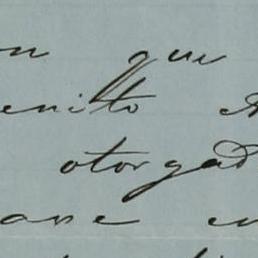 on que
enito
otorgad
ane en